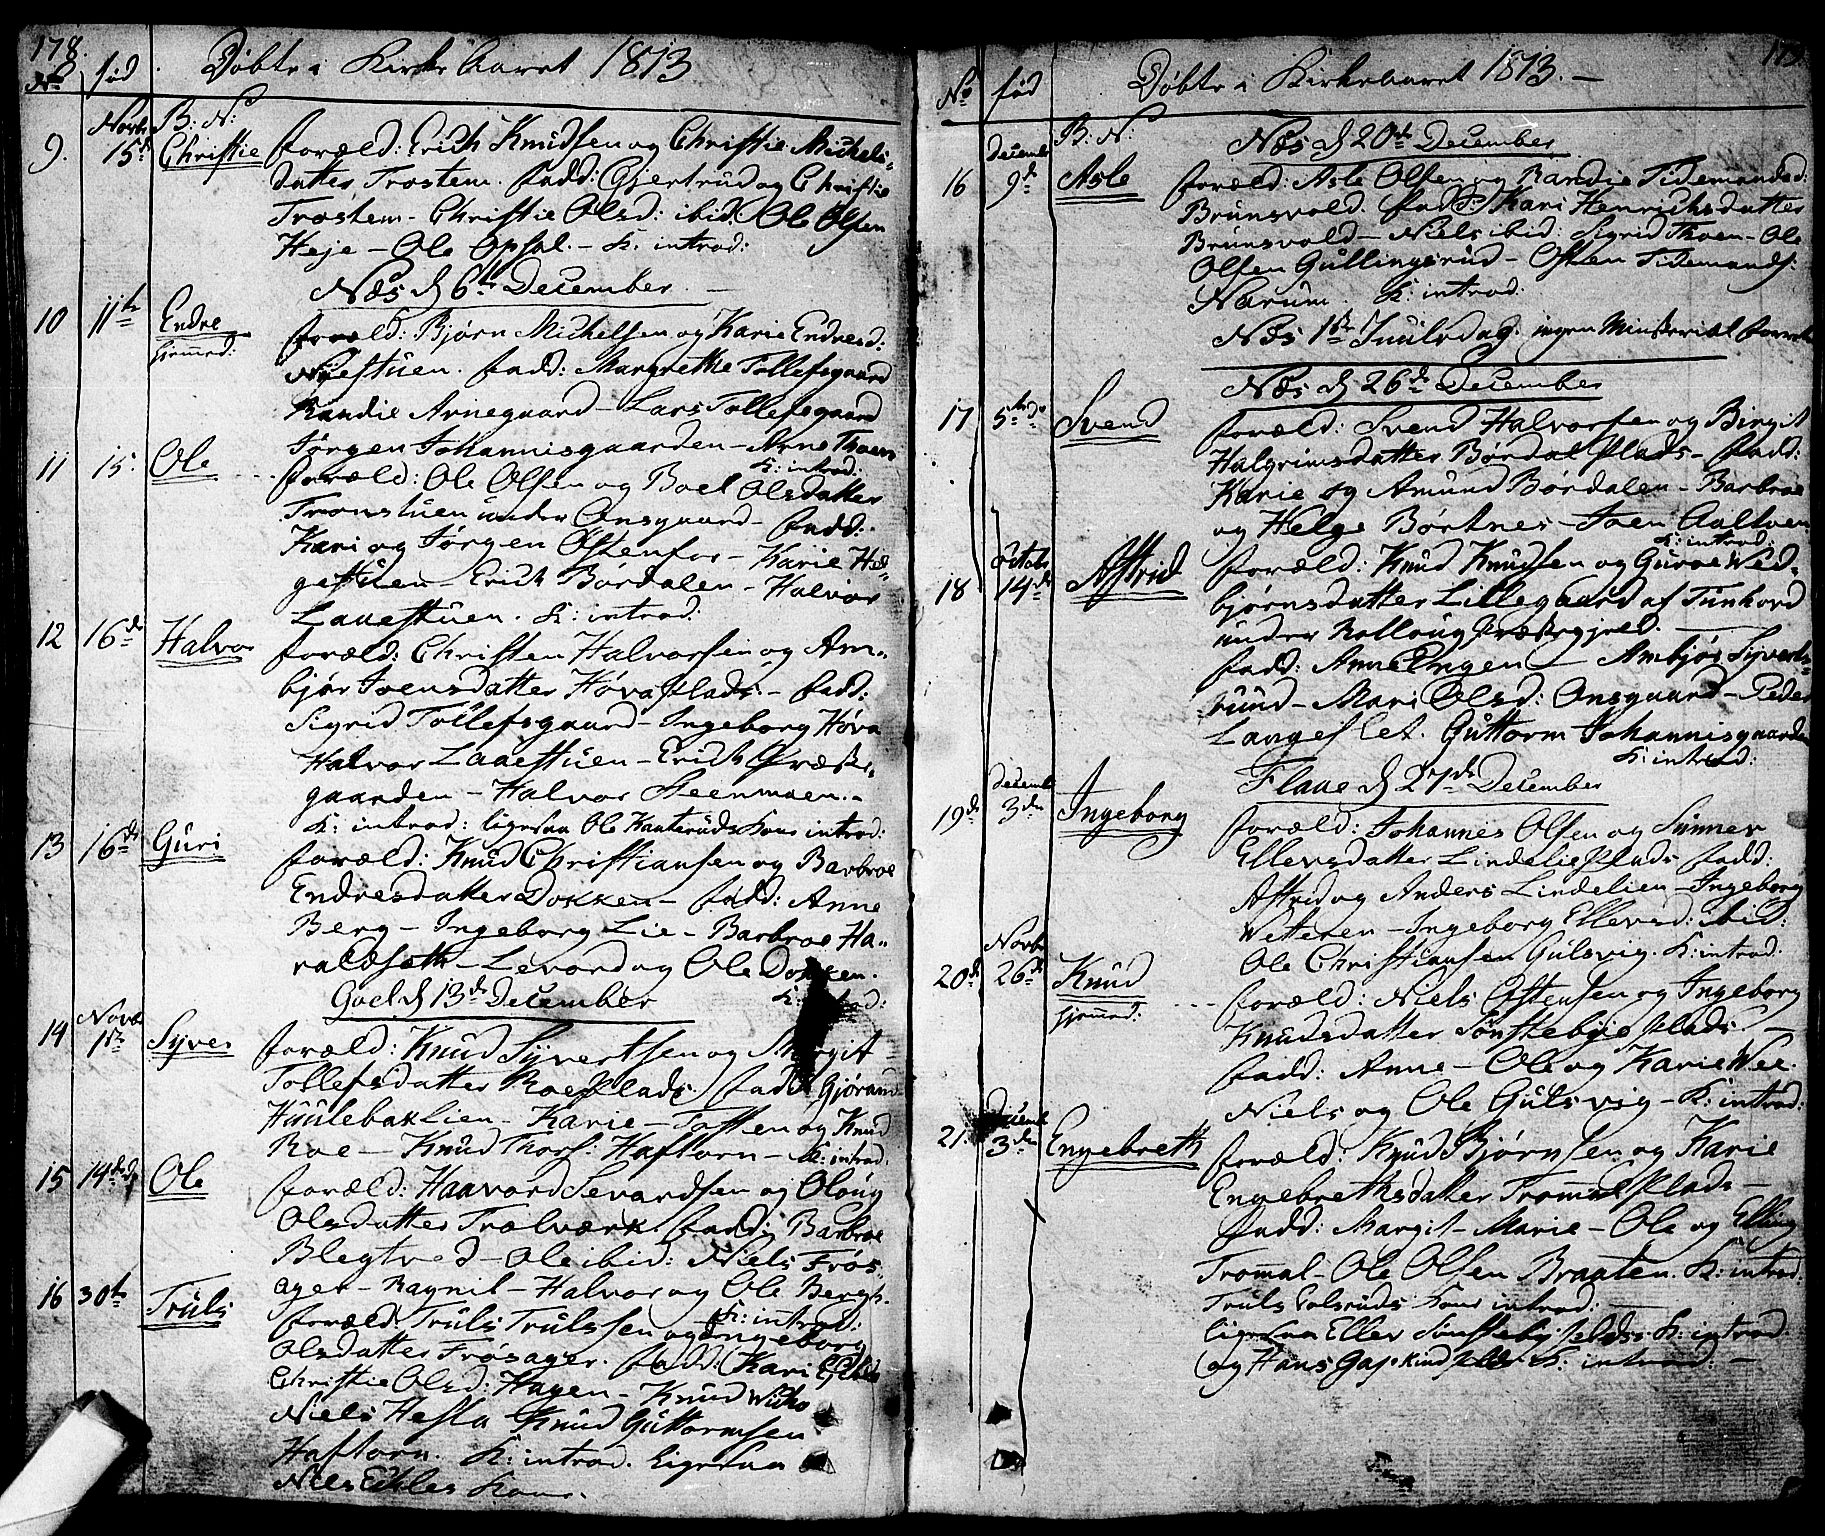 178.
No
fød
Døbte i Kirkeaaret 1813
Novbr
B: N:
9.
15d
Christie
foræld: Erich Knudsen og Christie Michels-
datter Trostem. fadd: Gjertrud og Christie
Trostem - Christie Olsd: ibid: Ole Olsen
Heje - Ole Opsal. - K. introd:
Næs d 6te December.
10
11te
Endre
hjemmed:
foræld: Bjørn Michelsen og Karie Endresd:
Nyestuen. fadd: Margrethe Tollefsgaard
Randie Arnegaard - Lars Tollefsgaard
Jørgen Johannisgaarden - Arne Thoen
K: introd:
11
15.
Ole
foræld: Ole Olsen og Boel Olsdatter
Tronstuen under Ansgaard - fadd:
Kari og Jørgen Østenfor - Karie Hed-
gestuen - Erich Børdalen - Halvor
Laaestuen. K: introd:
12
16de
Halvor
foræld: Christen Halvorsen og Am-
bjør Joensdatter Høva plads - fadd:
Sigrid Tollefsgaard - Ingeborg Høva
Halvor Laaestuen - Erich Præste-
gaarden - Halvor Steenmoen. -
K: introd: ligesaa Ole Kanteruds Kone introd:
13
16de
Guri
foræld: Knud Christiansen og Barbroe
Endresdatter Dokken - fadd: Anne
Berg - Ingeborg Lie - Barbroe Ha-
raldseth - Levord og Ole Dokken.
K: introd:
Goel d 13de December
14
Novbr
1ste
Syver
foræld: Knud Syvertsen og Margit
Tollefsdatter Roe plads. fadd: Gjørand
Huulebaklien - Karie - Tosten og Knud
Roe - Knud Thors: Haftorn - K: introd.
15
14de
Ole
foræld: Haavord Sevardsen og Oloug
Olsdatter Trælværk. fadd: Barbroe
Blegtved - Ole ibid: Niels Frøs-
ager - Ragnil - Halvor og Ole Bergh.
K: introd:
16
30te
Truls
foræld: Truls Trulssen og Ingeborg
Olsdatter Frøsager. fadd: Kari
Christie Olsd: Hagen - Knud
Niels Hesla - Knud Guttormsen
Haftorn. K: introd. Ligesaa
Niels Kone.
No
fød
Døbte i Kirkeaaret 1813. -
December
B: N:
Næs d 20de December
16
9de
Asle
foræld: Asle Olsen og Randie Tidemandsd:
Brunsvold. fadd: Kari Henrichsdatter
Brunsvold - Niels ibid: Sigrid Thoen - Ole
Olsen Gullingsrud - Østen Tidemands:
Narum. K: introd:
Næs 1ste Juuledag. ingen Ministerial forret
Næs d 26de December
17
5te do
Svend
foræld: Svend Halvorsen og Birgit
Halgrimsdatter Børdal plads - fadd:
Karie og Amund Børdalen - Barbroe
og Helge Børtnes - Joen Aaltven
K: introd:
18
Octob:
14de
Astrid
foræld: Knud Knudsen og Guroe Wed-
bjørnsdatter Lillegaard af Tunhovd
under Rolloug Præstegjeld.
fadd: Anne Engen - Ambjør Syverts-
ruud - Mari Olsd: Ansgaard - Peder
Langeslet. Guttorm Johannisgaarden
K: introd:
Flaae d 27de December
19de
December
3de
Ingeborg
foræld: Johannes Olsen og Sunnev
Ellevsdatter Lindelie plads fadd:
Astrid og Anders Lindelien - Ingeborg
Wetteren - Ingeborg Ellevsd: ibid:
Ole Christiansen Gulsvig. K: introd:
20de
Novbr
26de
Knud
hjemmed:
foræld: Niels Østensen og Ingeborg
Knudsdatter Sønstebyie plads. -
fadd: Anne - Ole og Karie Wee.
Niels og Ole Gulsvig - K: introd:
21.
Decemb
3de
Engebreth
foræld: Knud Bjørnsen og Karie
Engebrethsdatter Tromal plads -
fadd: Margit - Marie - Ole og Elling
Tromal - Ole Olsen Braaten. K: introd.
Truls Kone introd:
ligesaa Ellev Sønsteby plads. K: introd
og Hans plads K: introd: -